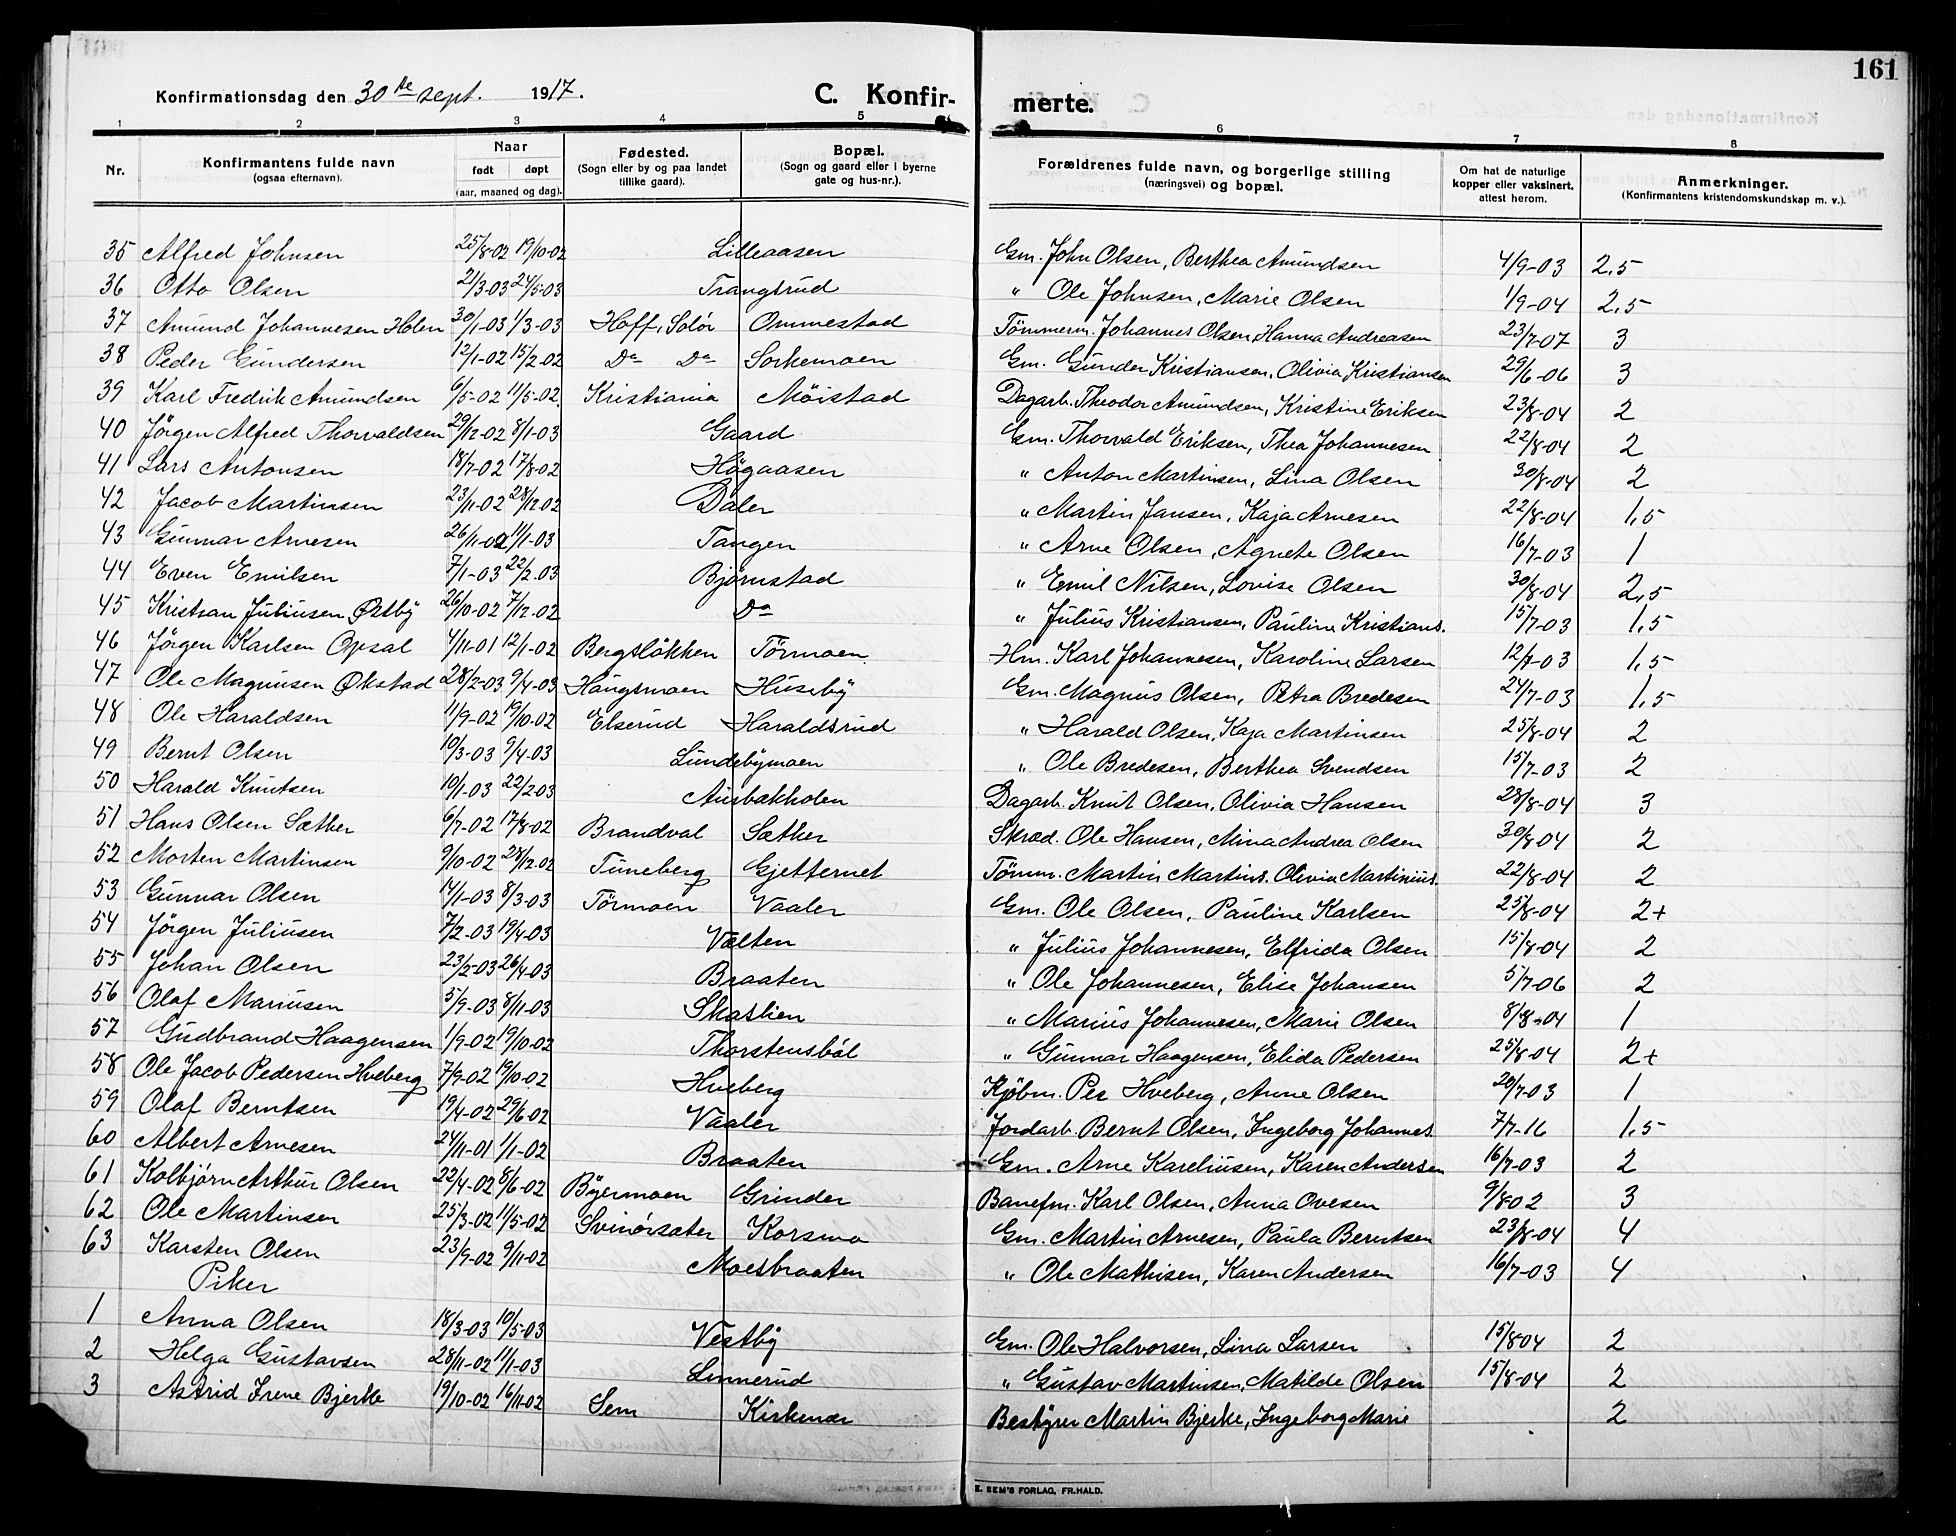 161
Konfirmationsdag den 30de sept. 1917.
C. Konfirmerte.
1 2 3 4 5 6 7 8
Nr. Konfirmantens fulde navn (ogsaa efternavn). Naar født døpt (aar, maaned og dag). Fødested. (Sogn eller by og paa landet tillike gaard). Bopæl. (Sogn og gaard eller i byerne gate og hus-nr.). Forældrenes fulde navn, og borgerlige stilling (næringsvei) og bopæl. Om hat de naturlige kopper eller vaksinert, attest herom. Anmerkninger. (Konfirmantens kristendomskundskap m. v.).
35 Alfred Johnsen 25/8-02 19/10-02 Lilleaasen Gm. John Olsen, Berthea Amundsen 4/9-03 2,5
36 Otto Olsen 21/3-03 24/5-03 Trangsrud " Ole Johnsen, Marie Olsen 1/9-04 2,5
37 Amund Johannesen Holen 30/1-03 1/3-03 Hoff, Solör Ommestad Tömmerm. Johannes Olsen, Hanna Andreasen 23/7-07 3
38 Peder Gundersen 12/1-02 15/2-02 Do Do Sorkemoen Gm. Gunder Kristiansen, Olivia Kristiansen 29/6-06 3
39 Karl Fredrik Amundsen 6/5-02 11/5-02. Kristiania Möistad Dagarb. Theodor Amundsen, Kristine Eriksen 23/8-04 2
40 Jörgen Alfred Thorvaldsen 29/12-02 8/1-03 Gaard Gm. Thorvald Eriksen, Thea Johannesen 22/8-04 2
41 Lars Antonsen 18/7-02 17/8-02 Högaasen " Anton Martinsen, Lina Olsen 30/8-04 2
42 Jacob Martinsen 23/11-02 28/12-02 Daler " Martin Jansen, Kaja Arnesen 22/8-04 1,5
43 Gunnar Arnesen 26/11-02 11/1-03 Tangen " Arne Olsen, Agnete Olsen 16/7-03 1
44 Even Emilsen 7/1-03 22/2-03 Björnstad " Emil Nilsen, Lovise Olsen 30/8-04 2,5
45 Kristian Juliusen Østby 26/10-02 7/12-02 Do " Julius Kristiansen, Pauline Kristians. 15/7-03 1,5
46 Jörgen Karlsen Opsal 4/11-01 12/1-02 Bergslökken Törmoen Hm. Karl Johannesen, Karoline Larsen 12/7-03 1,5
47 Ole Magnusen Økstad 28/2-03 9/4-03 Haugsmoen Huseby Gm. Magnus Olsen, Petra Bredesen 24/7-03 1,5
48 Ole Haraldsen 11/9-02 19/10-02 Elserud Haraldsrud " Harald Olsen, Kaja Martinsen 25/8-04 2
49 Bernt Olsen 19/3-03 9/4-03 Lundebymoen " Ole Bredesen, Berthea Svendsen 15/7-03 2
50 Harald Knutsen 10/1-03 22/2-03 Ausbakholen Dagarb. Knut Olsen, Olivia Hansen 28/8-04 3
51 Hans Olsen Sæther 6/7-02 17/8-02 Brandval Sæther Skræd. Ole Hansen, Mina Andrea Olsen 30/8-04 2
52 Morten Martinsen 9/10-02 28/12-02 Tuneberg Gjetternet Tömm. Martin Martins. Olivia Martinius. 22/8-04 2
53 Gunnar Olsen 14/1-03 8/3-03 Törmoen Vaaler Gm. Ole Olsen, Pauline Karlsen 25/8-04 2+
54 Jörgen Juliusen 7/2-03 19/4-03 Vælten " Julius Johannesen, Elfrida Olsen 15/8-04 2
55 Johan Olsen 23/2-03 26/4-03 Braaten " Ole Johannesen, Elise Johansen 5/7-06 2
56 Olaf Mariusen 5/9-03 8/11-03 Skaslien " Marius Johannesen, Marie Olsen 8/8-04 1
57 Gudbrand Haagensen 1/9-02 19/10-02 Thorstensböl " Gunnar Haagensen, Elida Pedersen 25/8-04 2+
58 Ole Jacob Pedersen Hveberg 7/9-02 19/10-02 Hveberg Kjöbm. Per Hveberg, Anne Olsen 20/7-03 1
59 Olaf Berntsen 19/4-02 29/6-02 Vaaler Jordarb. Bernt Olsen, Ingeborg Johannes. 7/7-16 1,5
60 Albert Arnesen 24/11-01 1/1-02 Braaten Gm. Arne Kareliusen, Karen Andersen 16/7-03 2
61 Kolbjörn Arthur Olsen 22/4-02 8/6-02 Byermoen Grinder Banefm. Karl Olsen, Anna Ovesen 9/8 02 3
62 Ole Martinsen 25/3-02 11/5-02 Svinörsæter Korsmo Gm. Martin Arnesen, Paula Berntsen 23/8-04 4
63 Karsten Olsen 23/9-02 9/11-02 Moesbraaten " Ole Mathisen, Karen Andersen 16/7-03 4
Piker
1 Anna Olsen 18/3-03 10/5-03 Vestby Gm. Ole Halvorsen, Lina Larsen 15/8 04 2
2 Helga Gustavsen 28/11-02 11/1-03 Linnerud " Gustav Martinsen, Matilde Olsen 15/8-04 2
3 Astrid Irene Bjerke 19/10-02 16/11-02 Sem Kirkenær Bestyrer Martin Bjerke, Ingeborg Marie 2
E. SEM'S FORLAG, FR.HALD.